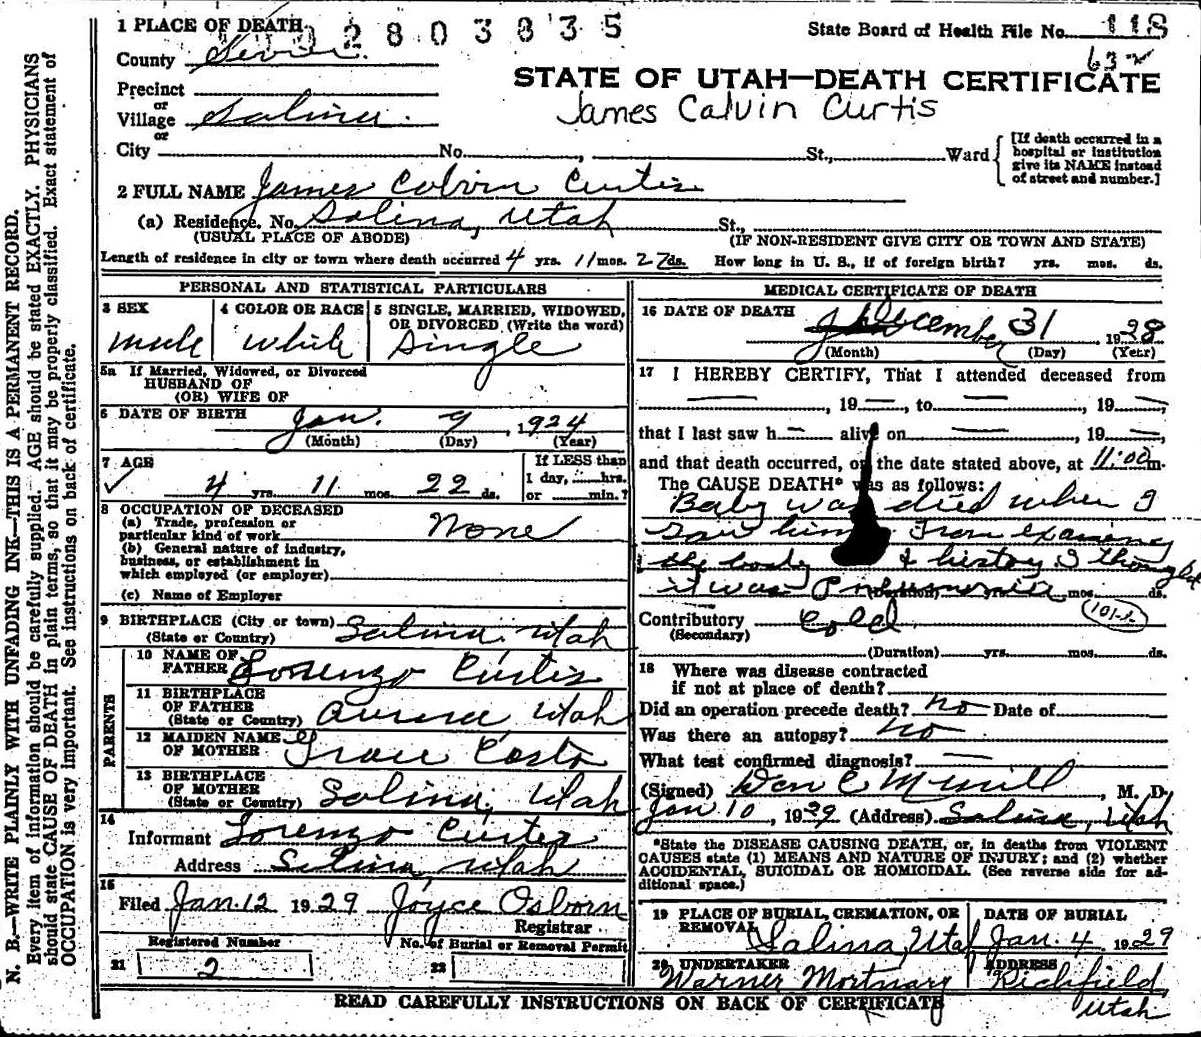 1 PLACE OF DEATH
2803835
State Board of Health File No. 118
County Sevier
63
STATE OF UTAH—DEATH CERTIFICATE
Precinct
or
James Calvin Curtis
Village Salina.
or
City No. , St., Ward
[If death occurred in a
hospital or institution
give its NAME instead
of street and number.]
2 FULL NAME James Colvin Curtis
(a) Residence. No. Salina, Utah St.,
(USUAL PLACE OF ABODE) (IF NON-RESIDENT GIVE CITY OR TOWN AND STATE)
Length of residence in city or town where death occurred 4 yrs. 11 mos. 27 ds. How long in U. S., if of foreign birth? yrs. mos. ds.
PERSONAL AND STATISTICAL PARTICULARS
3 SEX 4 COLOR OR RACE 5 SINGLE, MARRIED, WIDOWED,
OR DIVORCED (Write the word)
male white Single
5a If Married, Widowed, or Divorced
HUSBAND OF
(OR) WIFE OF
6 DATE OF BIRTH Jan. 9, 1924
(Month) (Day) (Year)
7 AGE If LESS than
✓ 4 yrs. 11 mos. 22 ds. 1 day, hrs.
or min.?
8 OCCUPATION OF DECEASED
(a) Trade, profession or
particular kind of work None
(b) General nature of industry,
business, or establishment in
which employed (or employer)
(c) Name of Employer
9 BIRTHPLACE (City or town) Salina, Utah
(State or Country)
PARENTS
10 NAME OF
FATHER Lorenzo Curtis
11 BIRTHPLACE
OF FATHER
(State or Country) Aurora Utah
12 MAIDEN NAME
OF MOTHER Grace Casto
13 BIRTHPLACE
OF MOTHER
(State or Country) Salina, Utah
14
Informant Lorenzo Curtis
Address Salina, Utah
15
Filed Jan. 12 1929 Joyce Osborn
Registrar
Registered Number No. of Burial or Removal Permit
21 2 22
MEDICAL CERTIFICATE OF DEATH
16 DATE OF DEATH December 31 1928
(Month) (Day) (Year)
17 I HEREBY CERTIFY, That I attended deceased from
— , 19—, to — , 19—,
that I last saw h— alive on — , 19—,
and that death occurred, on the date stated above, at 11:00 m.
The CAUSE DEATH* was as follows:
Baby was died when I
saw him From examing
the body & history I thought
it was Pneumonia mos. ds.
Contributory Cold
(Secondary)
(Duration) yrs. mos. ds.
18 Where was disease contracted
if not at place of death?
Did an operation precede death? No Date of
Was there an autopsy? No
What test confirmed diagnosis? —
(Signed) Don C Merrill, M. D.
Jan 10, 1929 (Address) Salina, Utah
*State the DISEASE CAUSING DEATH, or, in deaths from VIOLENT
CAUSES state (1) MEANS AND NATURE OF INJURY; and (2) whether
ACCIDENTAL, SUICIDAL OR HOMICIDAL. (See reverse side for ad-
ditional space.)
19 PLACE OF BURIAL, CREMATION, OR
REMOVAL DATE OF BURIAL
Salina, Utah Jan. 4 1929
20 UNDERTAKER ADDRESS
Warner Mortuary Richfield,
Utah
READ CAREFULLY INSTRUCTIONS ON BACK OF CERTIFICATE
N. B.—WRITE PLAINLY WITH UNFADING INK—THIS IS A PERMANENT RECORD.
Every item of information should be carefully supplied. AGE should be stated EXACTLY. PHYSICIANS
should state CAUSE OF DEATH in plain terms, so that it may be properly classified. Exact statement of
OCCUPATION is very important. See instructions on back of certificate.